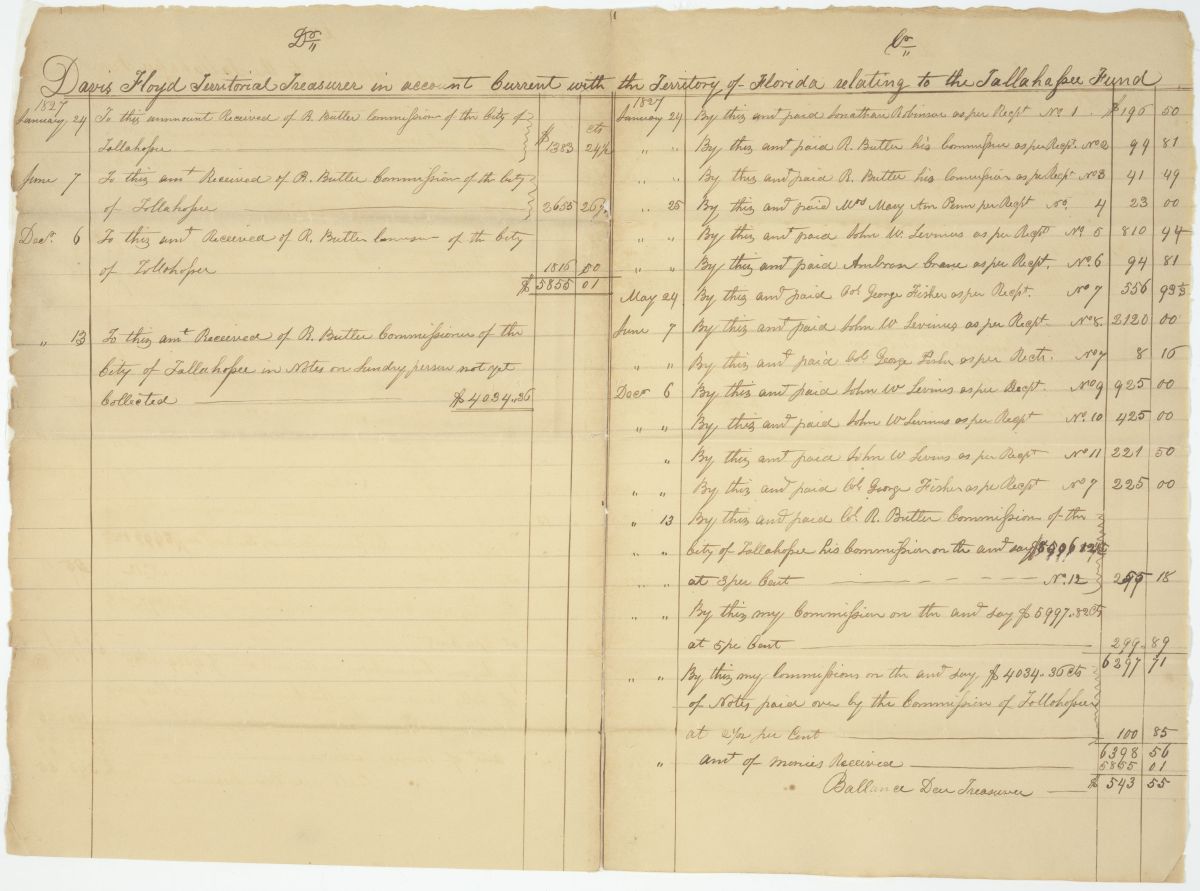 Dr
Cr
Davis Floyd Territorial Treasurer in account Current with the Territory of Florida relating to the Tallahassee Fund
1827
January 24 To this ammount Received of R. Butler Commission of the City of
Tallahassee $ 1383 cts 24½
June 7 To this amt Received of R. Butler Commission of the City
of Tallahassee 2655 26½
Decr. 6 To this amt Received of R. Butler of the City
of Tallahassee 1816 50
$ 5855 01
" 13 To this amt Received of R. Butler Commissioner of the
City of Tallahassee in Notes on Sundry person not yet
Collected $4034..36
1827
January 24 By this amt paid Jonathan Robinson as per Recpt No 1 $ 196 50
" " By this amt paid R. Butler his Commission as per Recpt. No 2 99 81
" " By this amt paid R. Butler his Commission as per Recpt No 3 41 49
" 25 By this amt paid Mrs Mary Ann Penn per Recpt No. 4 23 00
" " By this amt paid John W. Levinus as per Recpt No 5 810 44
" " By this amt paid Ambrose Crane as per Recpt. No. 6 94 81
May 24 By this amt paid Col George Fisher as per Recpt. No 7 556 93½
June 7 By this amt paid John W Levinus as per Recpt No 8. 2120 00
" " By this amt paid Col George Fisher as per Rect. No 7 8 16
Decr 6 By this amt paid John W Levinus as per Recpt. No 9 925 00
" " By this amt paid John W Levinus as per Recpt No. 10 425 00
" By this amt paid John W Levins as per Recpt No 11 221 50
" " By this amt paid Col George Fisher as per Recpt No 7 225 00
" 13 By this amt paid Col. R. Butler Commission of the
" " City of Tallahassee his Commission on the amt say
" " at 3 per Cent No. 12 18
By this my Commission on the amt say $5997..82 Cts
at 5 per Cent 299. 89
6297 71
" " By this my Commissions on the amt say $4034..36 cts
of Notes paid over by the Commission of Tallahassee
at 2½ per Cent 100 85
6398 56
" amt of monies Received 5855 01
Ballance Due Treasurer $ 543 55